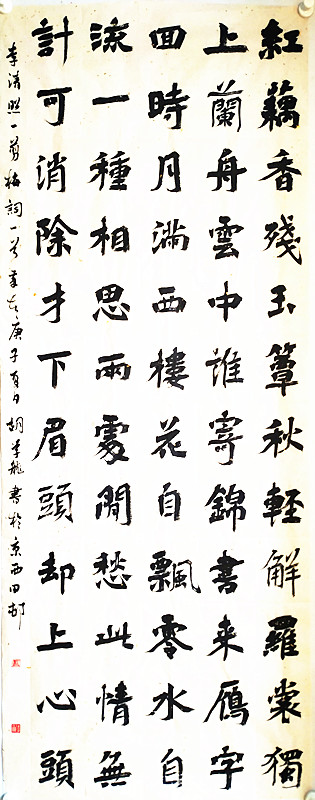 紅藕香殘玉簟秋輕解羅裳獨
上蘭舟雲中誰寄錦書来鴈字
回時月満西樓花自飄零水自
流一種相思兩處閒愁此情無
計可消除才下眉頭却上心頭
李清照一剪梅詞一首 庚子 胡李飛書於京西田村